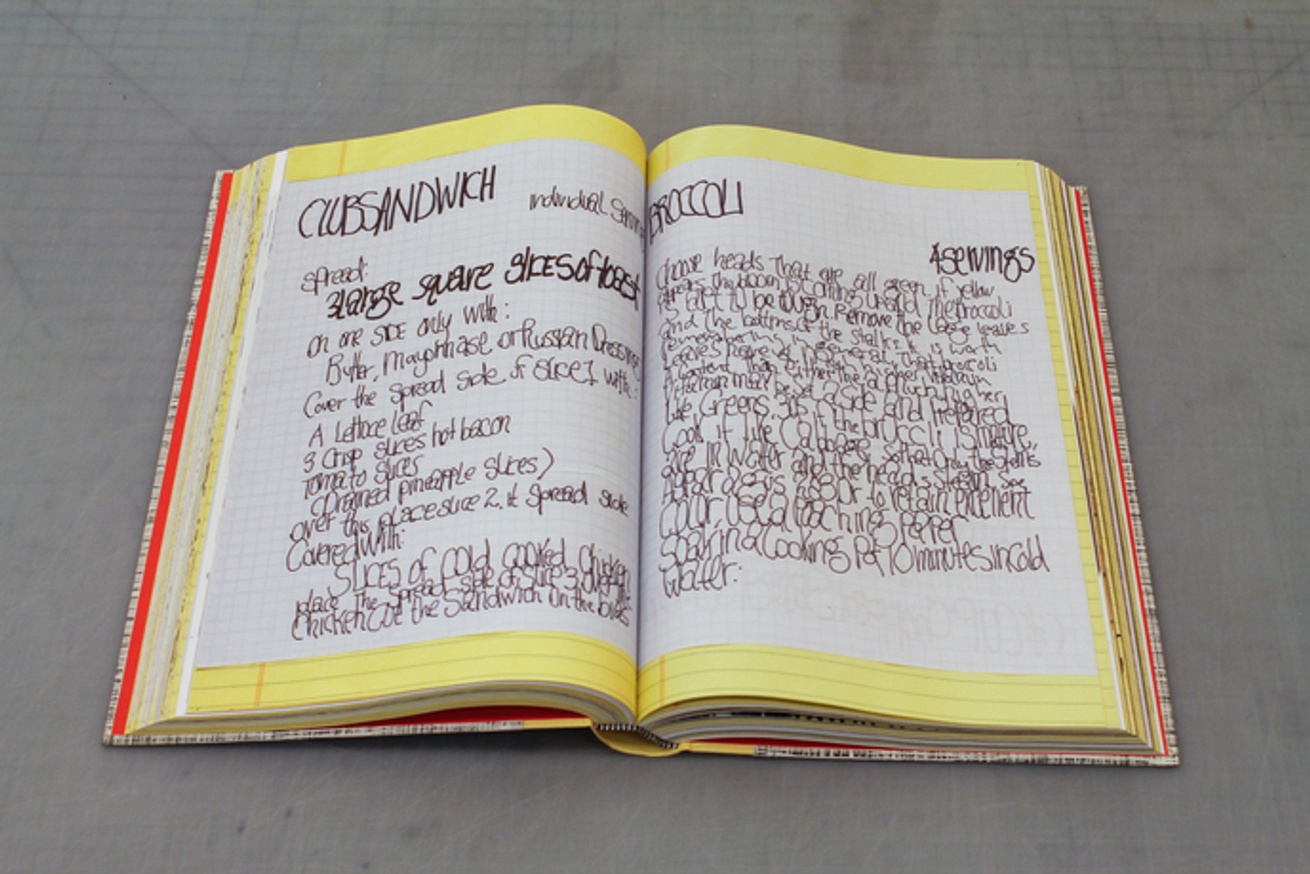 CLUBSANDWICH
individual
spread:
3 large square slices of toast
on one side only with:
Butter, mayonnase or Russian Dressing
Cover the spread side of slice 1 with:
A Lettoce leaf
3 Crisp slices hot bacon
Tomato slices
(Drained pineapple slices)
over this place slice 2. it spread side
Covered with:
Slices of cold cooked chicken
place the spread side of slice 3 on the
chicken Cut the sandwich on the bias
BROCCOLI
4 servings
Choose heads that are all green. if yellow
appears the bloom is coming up and the broccoli
is apt to be tough. Remove the large leaves
and the bottoms of the stalks. it is worth
remembering in general, that broccoli
leaves have
content than either the
may be set aside and prepared
like Greens.
Cook if like Cabbage, so that only the stems
are in water and the heads steam. See
to retain
Color, use a poaching paper
Soak in a cooking 10 minutes in cold
water: